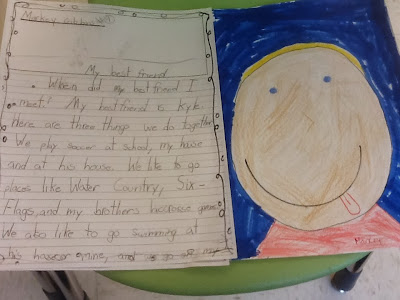 Markey
My best friend
When did my bestfriend I
meet? My bestfriend is Kyle.
Here are three things we do together
We play soccer at school, my house
and at his house. We like to go
places like Water Country, Six-
Flags, and my brothers lacrosse games
We also like to go swimming at
his house or mine, and